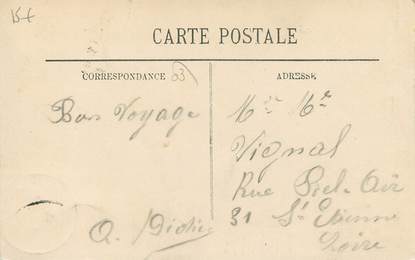 15€
CARTE POSTALE
CORRESPONDANCE
03
ADRESSE
Bon Voyage
Mr Mr
Vignal
Rue Bel-Air
31 St Etienne
Loire
A.